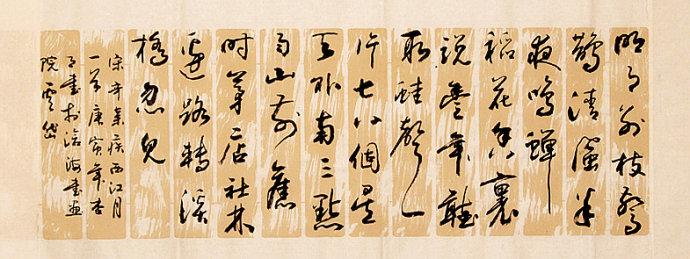 明月别枝驚
鵲清風半
夜鳴蟬
稻花香裏
說豐年聽
取蛙聲一
片七八個星
天外兩三點
雨山前舊
時茅店社林
邊路轉溪
橋忽見
宋辛棄疾西江月
一首庚寅年杏
月書於滄海書畫
院雲岱